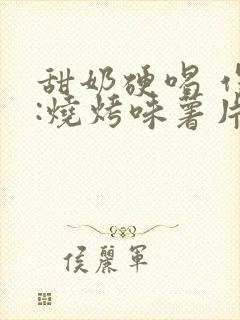 甜奶硬唱
:燒烤味薯片
侯麗軍